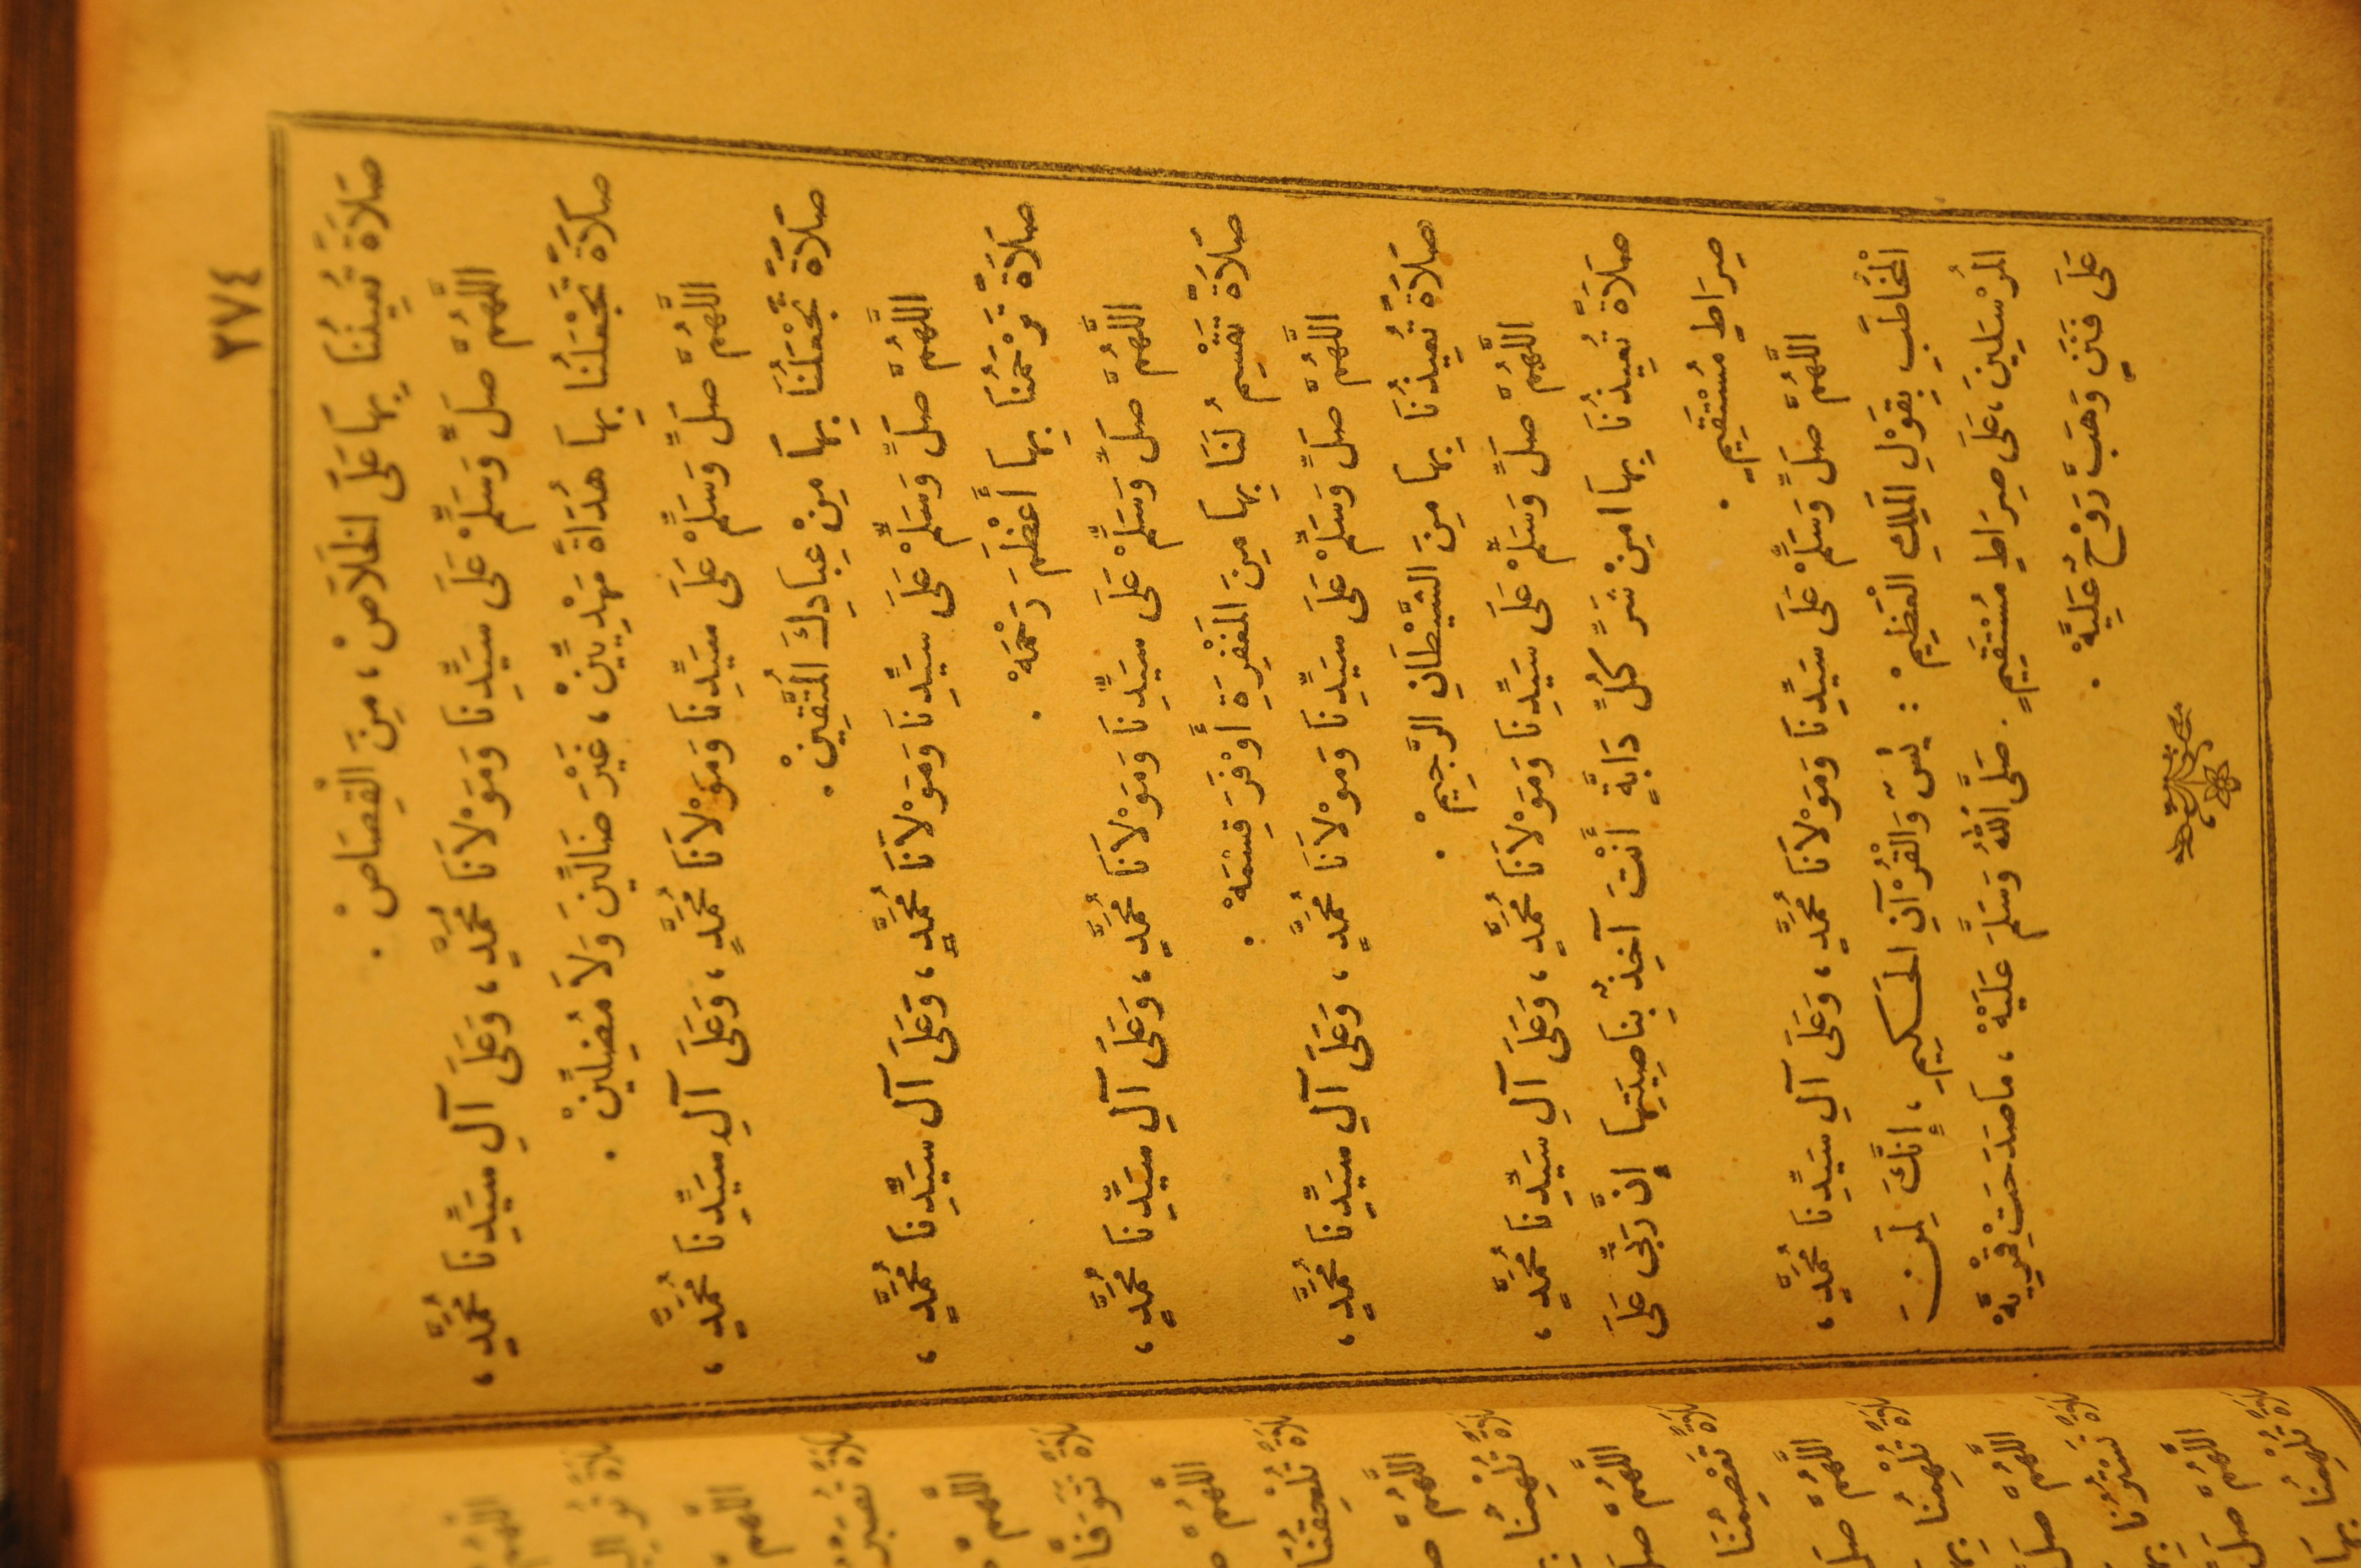 ٢٧٤
صَلَاةً تُعِينُنَا بِهَا عَلَى الْخَلَاصْ، مِنَ الْقِصَاصْ.
اللَّهُمَّ صَلِّ وَسَلِّمْ عَلَى سَيِّدِنَا وَمَوْلَانَا مُحَمَّدٍ، وَعَلَى آلِ سَيِّدِنَا مُحَمَّدٍ،
صَلَاةً تَجْعَلُنَا بِهَا هُدَاةً مَهْدِيِّينْ، غَيْرَ ضَالِّينَ وَلَا مُضِلِّينْ.
اللَّهُمَّ صَلِّ وَسَلِّمْ عَلَى سَيِّدِنَا وَمَوْلَانَا مُحَمَّدٍ، وَعَلَى آلِ سَيِّدِنَا مُحَمَّدٍ،
صَلَاةً تَجْعَلُنَا بِهَا مِنْ عِبَادِكَ الْمُتَّقِينْ.
اللَّهُمَّ صَلِّ وَسَلِّمْ عَلَى سَيِّدِنَا وَمَوْلَانَا مُحَمَّدٍ، وَعَلَى آلِ سَيِّدِنَا مُحَمَّدٍ،
صَلَاةً تَرْحَمُنَا بِهَا أَعْظَمَ رَحْمَهْ.
اللَّهُمَّ صَلِّ وَسَلِّمْ عَلَى سَيِّدِنَا وَمَوْلَانَا مُحَمَّدٍ، وَعَلَى آلِ سَيِّدِنَا مُحَمَّدٍ،
صَلَاةً تَقْسِمُ لَنَا بِهَا مِنَ الْمَغْفِرَةِ أَوْفَرَ قِسْمَهْ.
اللَّهُمَّ صَلِّ وَسَلِّمْ عَلَى سَيِّدِنَا وَمَوْلَانَا مُحَمَّدٍ، وَعَلَى آلِ سَيِّدِنَا مُحَمَّدٍ،
صَلَاةً تُعِيذُنَا بِهَا مِنَ الشَّيْطَانِ الرَّجِيمْ.
اللَّهُمَّ صَلِّ وَسَلِّمْ عَلَى سَيِّدِنَا وَمَوْلَانَا مُحَمَّدٍ، وَعَلَى آلِ سَيِّدِنَا مُحَمَّدٍ،
صَلَاةً تُعِيذُنَا بِهَا مِنْ شَرِّ كُلِّ دَابَّةٍ أَنْتَ آخِذٌ بِنَاصِيَتِهَا إِنَّ رَبِّي عَلَى
صِرَاطٍ مُسْتَقِيمٍ.
اللَّهُمَّ صَلِّ وَسَلِّمْ عَلَى سَيِّدِنَا وَمَوْلَانَا مُحَمَّدٍ، وَعَلَى آلِ سَيِّدِنَا مُحَمَّدٍ،
الْمُخَاطَبِ بِقَوْلِ الْمَلِكِ الْعَظِيمْ: يٰسٓ وَالْقُرْآنِ الْحَكِيمِ، إِنَّكَ لَمِنَ
الْمُرْسَلِينَ، عَلَى صِرَاطٍ مُسْتَقِيمٍ. صَلَّى اللهُ وَسَلَّمَ عَلَيْهْ، مَا صَدَحَتْ قُمْرِيَّهْ
عَلَى فَنَنٍ وَهَبَّ رَوْحٌ عَلَيَّهْ.